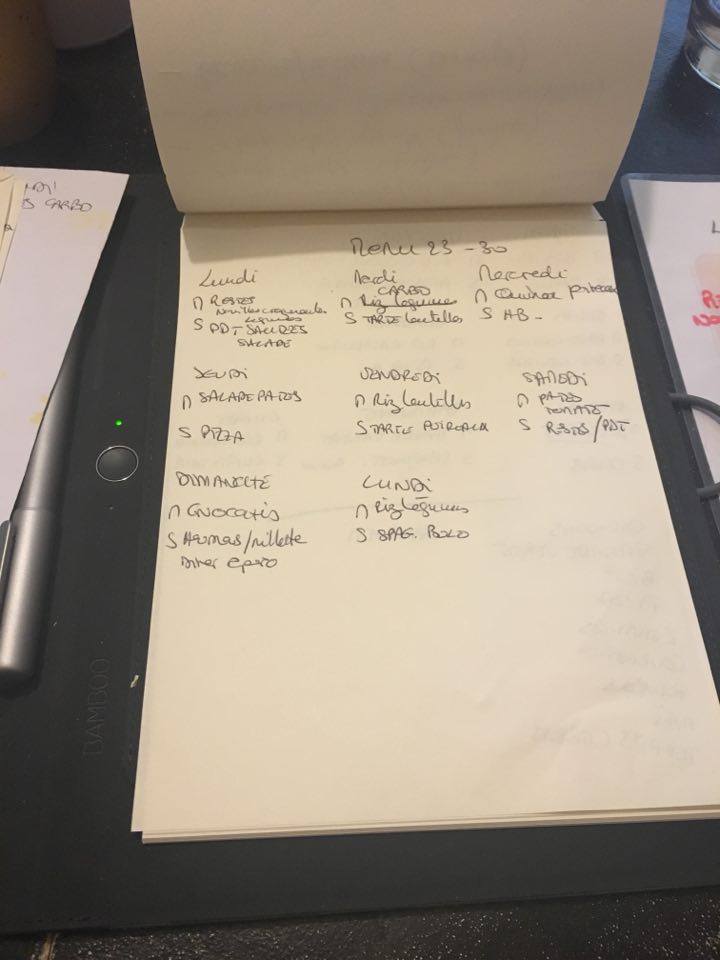 Menu 23 - 30
Lundi
n RESTES
légumes
S PDT SAURES
SALADE
Mardi
CARBO
n Riz légumes
S TARTE lentilles
Mercredi
n Quinoa
S HB -
JEUDI
n SALADE PATES
S PIZZA
VENDREDI
n Riz lentilles
S TARTE POIREAUX
SAMEDI
n PATES
TOMATE
S RESTES/PDT
DIMANCHE
n GNOCCHIS
S Houmas/rillette
Diner apero
LUNDI
n Riz légumes
S SPAG. BOLO
CARBO
BAMBOO